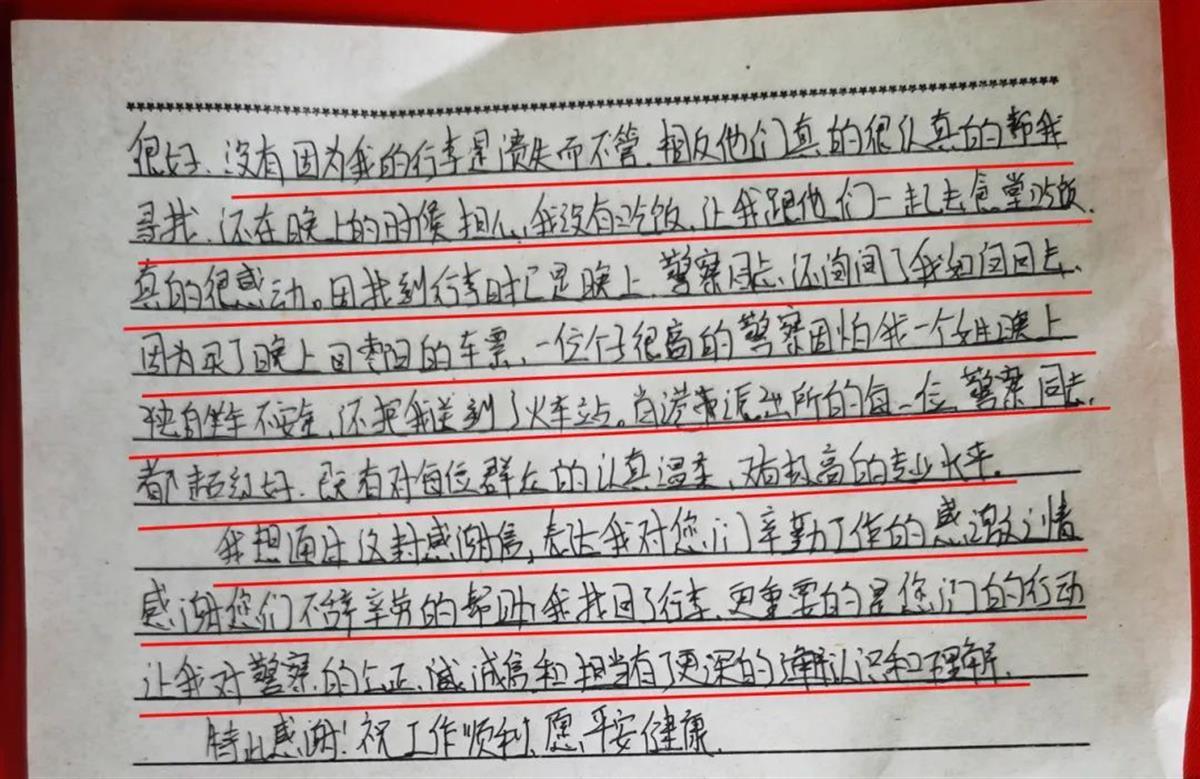 很好、没有因为我的行李是遗失而不管、相反他们真的很认真的帮我
寻找、还在晚上的时候担心我没有吃饭、让我跟他们一起去食堂吃饭、
真的很感动。因找到行李时已是晚上、警察同志、还询问了我如何回去、
因为买了晚上回枣阳的车票、一位个子很高的警察因怕我一个女生晚上
独自坐车不安全、还把我送到了火车站。肖港 派出所的每一位警察同志、
都超级好、既有对每位群众的认真温柔、又有极高的专业水平、
我想通过这封感谢信、表达我对您们辛勤工作的感激之情
感谢您们不辞辛劳的帮助我找回了行李、更重要的是您们的行动
让我对警察的公正、诚信和担当有了更深的 认识和理解、
特此感谢!祝工作顺利、愿平安健康、